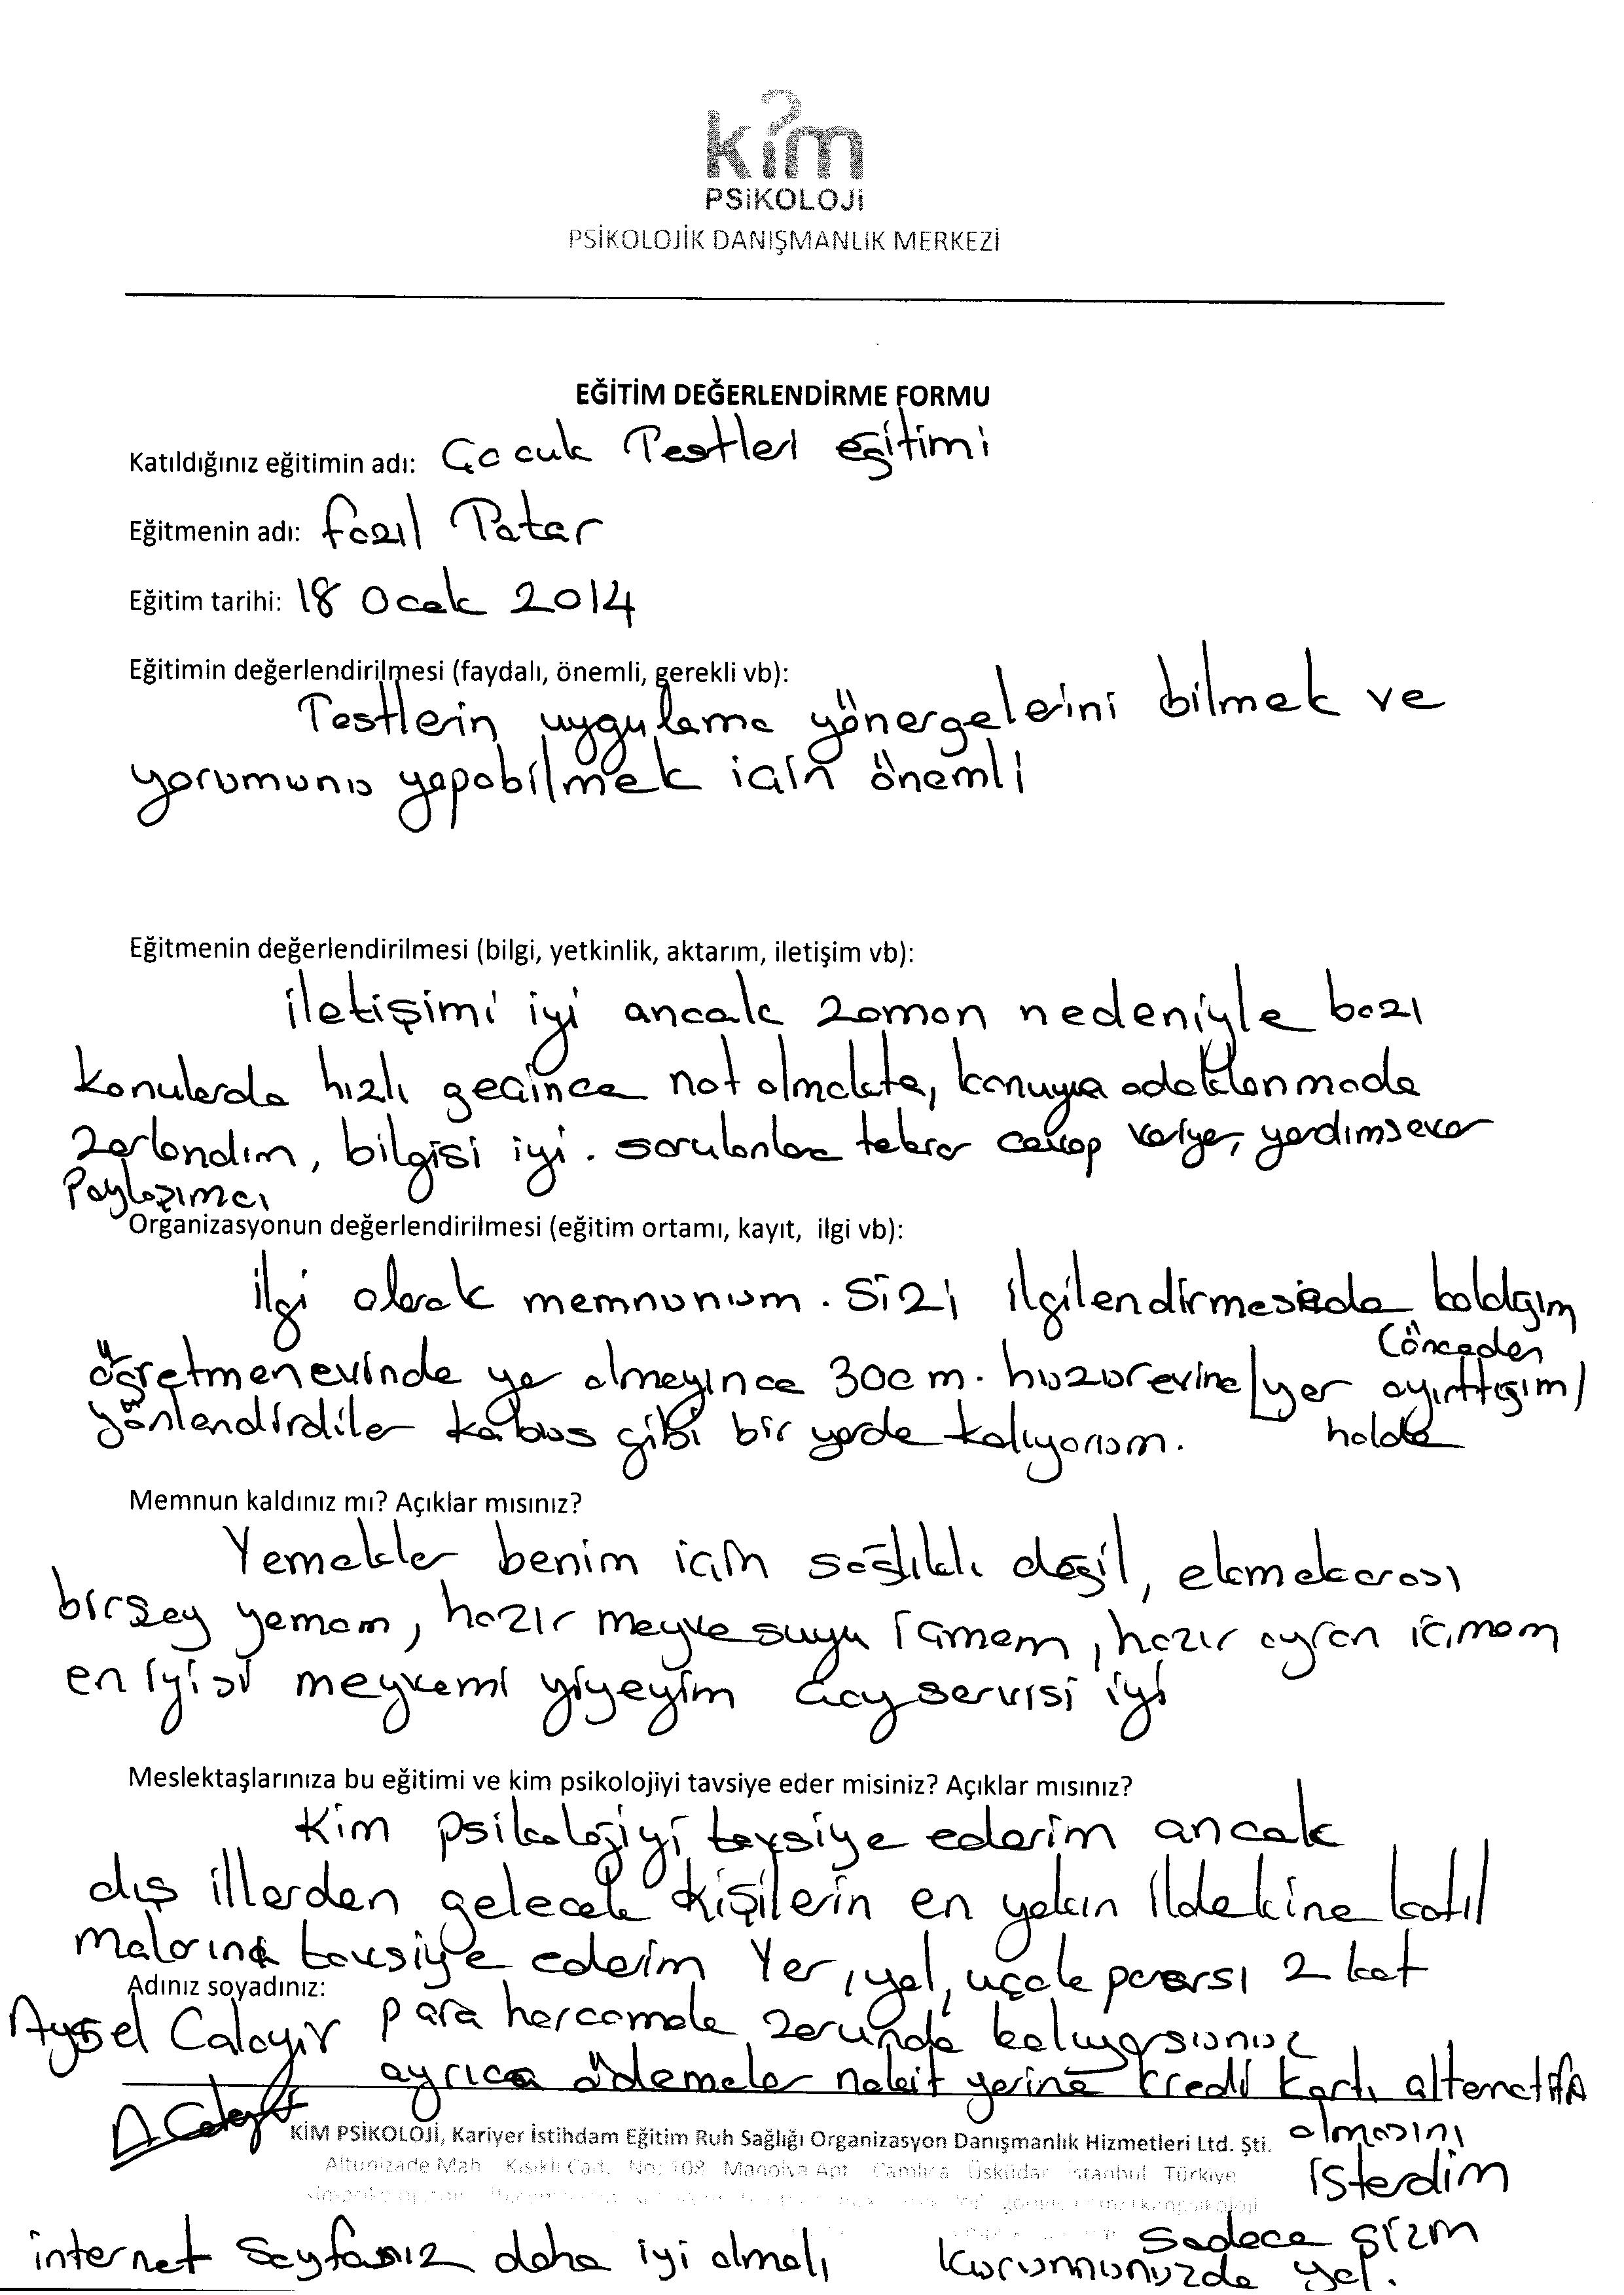 kim
PSİKOLOJİ
PSİKOLOJİK DANIŞMANLIK MERKEZİ
EĞİTİM DEĞERLENDİRME FORMU
Katıldığınız eğitimin adı: Çocuk Testleri eğitimi
Eğitmenin adı: Fazıl Tatar
Eğitim tarihi: 18 Ocak 2014
Eğitimin değerlendirilmesi (faydalı, önemli, gerekli vb):
Testlerin uygulama yönergelerini bilmek ve
yorumunu yapabilmek için önemli
Eğitmenin değerlendirilmesi (bilgi, yetkinlik, aktarım, iletişim vb):
iletişimi iyi ancak zaman nedeniyle bazı
konularda hızlı geçince not almakta, konuya odaklanmada
zorlandım, bilgisi iyi. sorulanlara tekrar cevap veriyor, yardımsever
Paylaşımcı
Organizasyonun değerlendirilmesi (eğitim ortamı, kayıt, ilgi vb):
ilgi olarak memnunum. Sizi ilgilendirmesede kaldığım
öğretmenevinde yer olmayınca 300 m. huzurevine (önceden yer ayırttığım halde)
yönlendirdiler kabus gibi bir yerde kalıyorum.
Memnun kaldınız mı? Açıklar mısınız?
Yemekler benim için sağlıklı değil, ekmekarası
birşey yemem, hazır meyve suyu içmem, hazır ayran içmem
en iyisi meyvemi yiyeyim çay servisi iyi
Meslektaşlarınıza bu eğitimi ve kim psikolojiyi tavsiye eder misiniz? Açıklar mısınız?
Kim psikolojiyi tavsiye ederim ancak
dış illerden gelecek kişilerin en yakın ildekine katıl
malarını tavsiye ederim Yer, yol, uçak parası 2 kat
Adınız soyadınız:
Aysel Calayır para harcamak zorunda kalıyorsunuz
ayrıca ödemeler nakit yerine kredi kartı alternatifin
olmasını
isterdim
Sadece sizin
kurumunuzda yok.
KİM PSİKOLOJİ, Kariyer İstihdam Eğitim Ruh Sağlığı Organizasyon Danışmanlık Hizmetleri Ltd. Şti.
Altunizade Mah. Kısıklı Cad. No: 108 Manolya Apt. Çamlıca Üsküdar İstanbul Türkiye
internet Sayfanız daha iyi olmalı